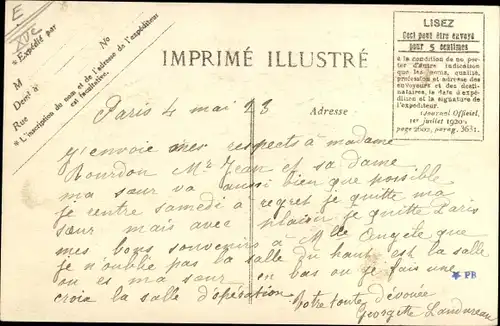 E
XVe
* Expédié par
M
Demt à
Rue
No
* L'inscription du nom et de l'adresse de l'expéditeur
est facultative.
IMPRIMÉ ILLUSTRÉ
LISEZ
Ceci peut être envoyé
pour 5 centimes
à la condition de ne por-
ter d'autre indication
que les noms, qualité,
profession et adresse des
envoyeurs et des desti-
nataires, la date d'expé-
dition et la signature de
l'expéditeur.
(Journal Officiel,
1er juillet 1920
page 2602, parag. 3631.
Paris 4 mai 23
Adresse
j'envoie mes respects à madame
Bourdon Mr Jean et sa dame
ma sœur va aussi bien que possible
je rentre samedi à regret je quitte ma
sœur mais avec plaisir je quitte Paris
mes bons souvenirs à Mlle Angèle que
je n'oublie pas la salle du haut est la salle
ou es ma sœur en bas ou je fais une
croix la salle d'opération
Votre toute dévouée
Georgette Landureau
* PB